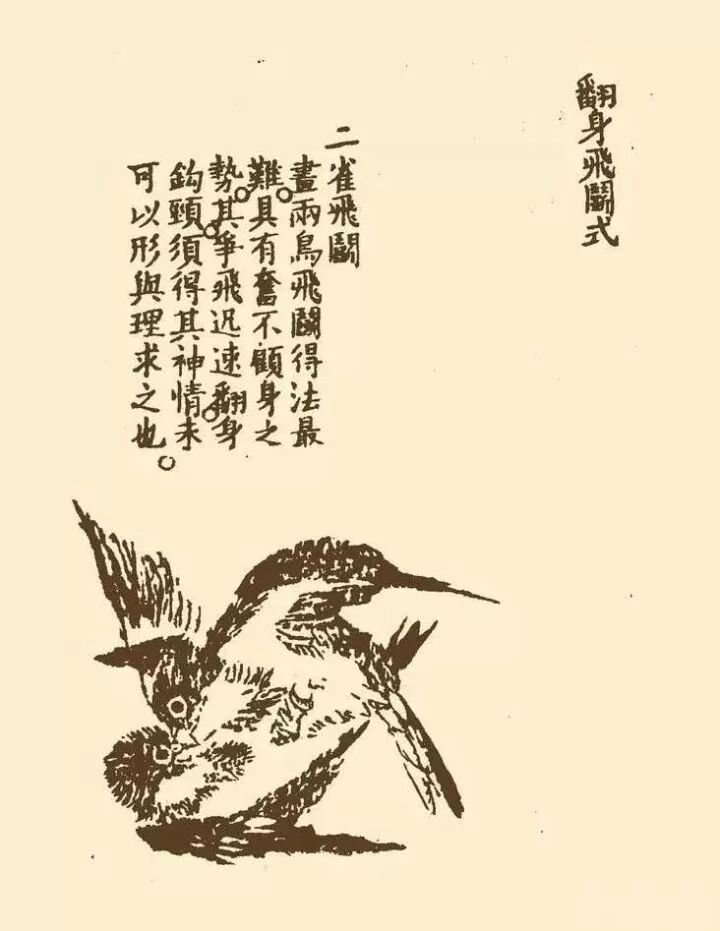 翻身飛鬭式
二雀飛鬭
畫兩鳥飛鬭得法最
難。具有奮不顧身之
勢。其爭飛迅速翻身
鈎頸。須得其神情。未
可以形與理求之也。